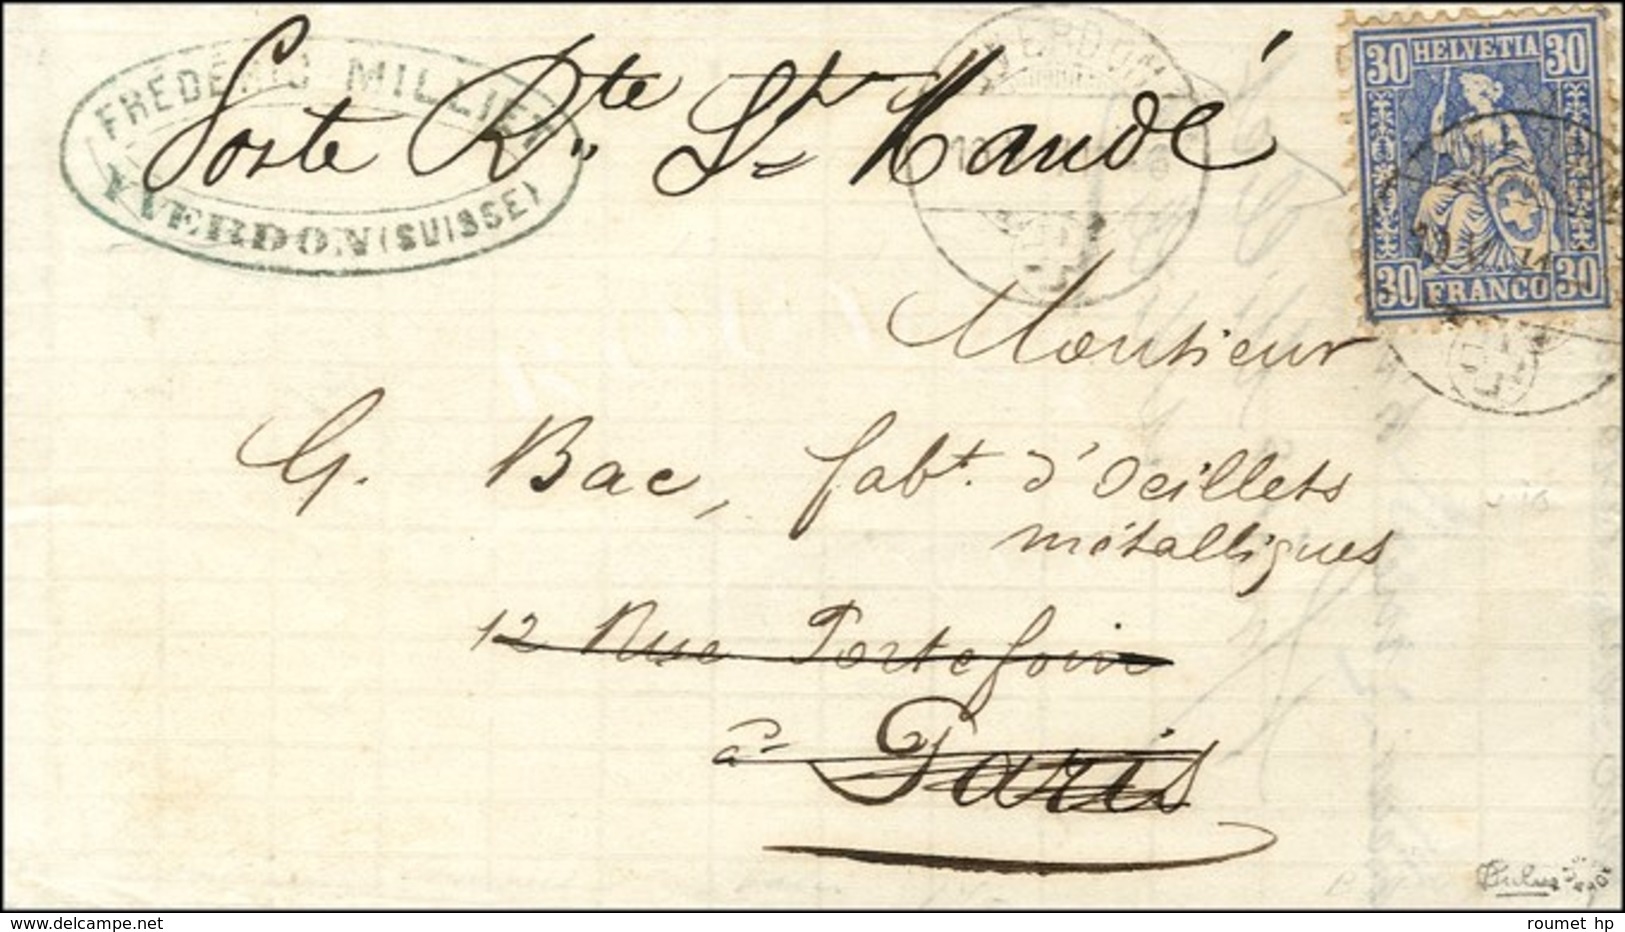 FRÉDÉRIC MILLIER
YVERDON (SUISSE)
Poste Rte St Mandé
YVERDON
30 HELVETIA 30
30 FRANCO 30
Monsieur
G. Bac, fabt. d'Oeillets
métalliques
12 Rue Portefoin
à Paris
roumet hp